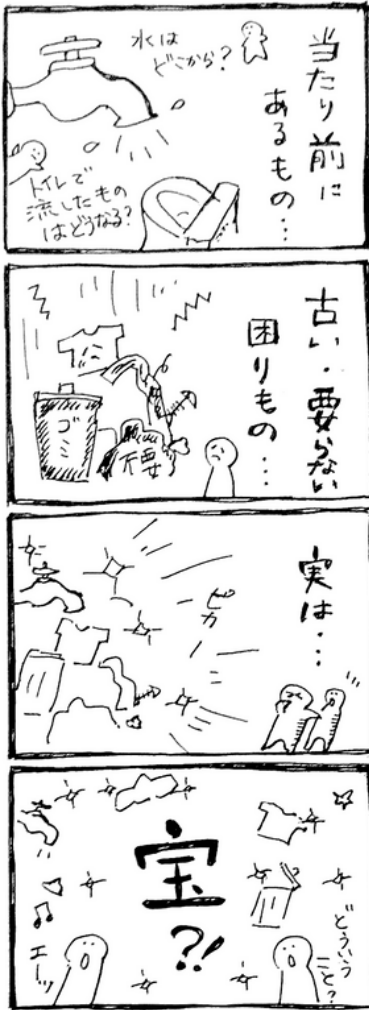 当たり前に
あるもの…
水は
どこから?
トイレで
流したもの
はどうなる?
古い・要らない
困りもの…
ゴミ
不要
実は…
ピカー
宝
?!
どういう
こと?
エーッ